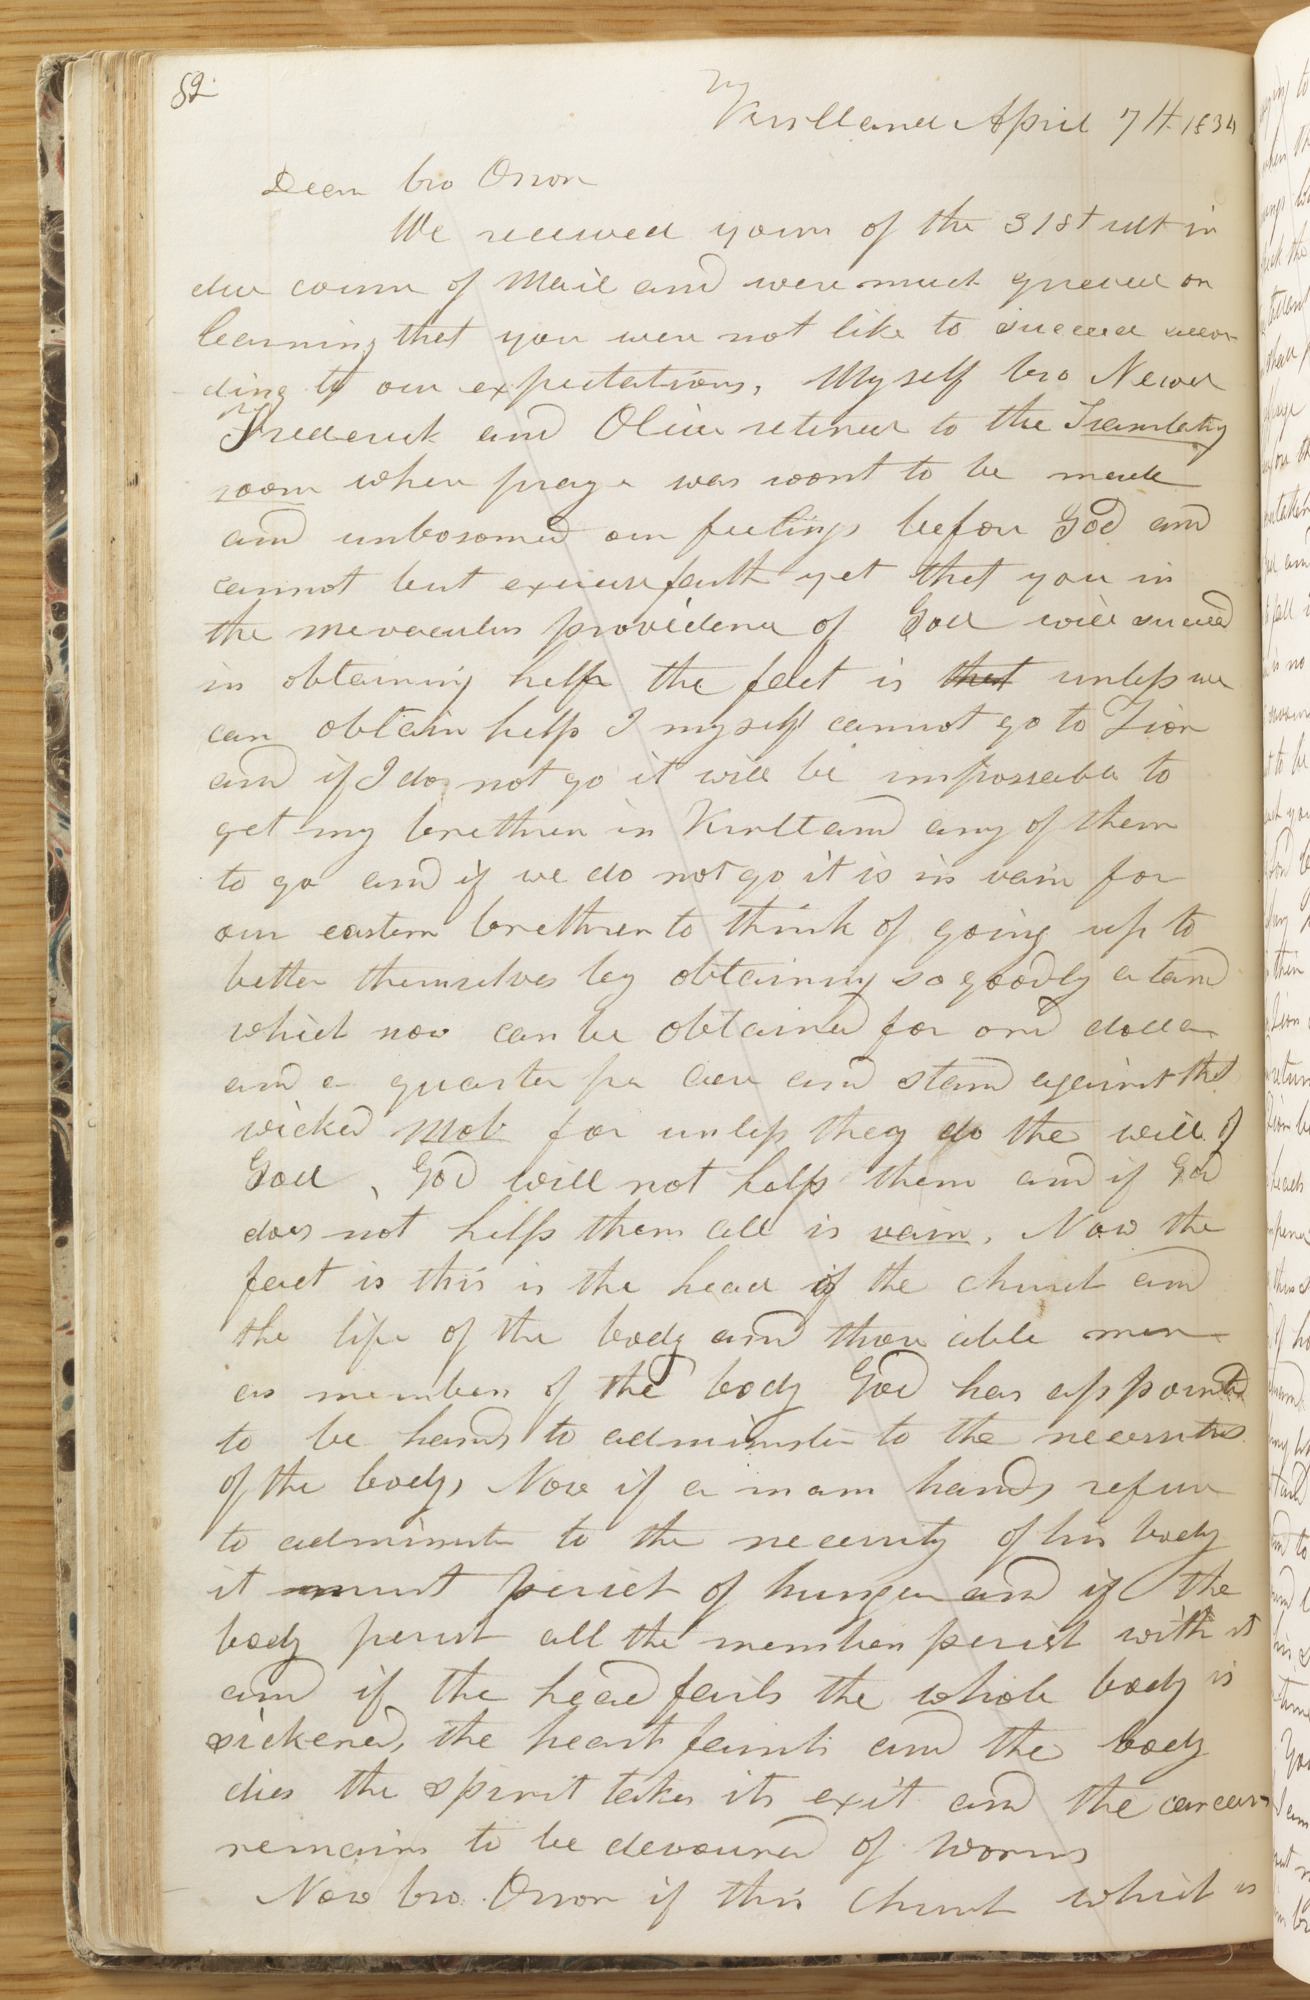 82
Kirtland April 7th 1834
Dear bro Orson
We received yours of the 31st ult in
due course of Mail and were much grieved on
learning that you were not like to succeed accor
ding to our expectations, Myself bro Newel
Frederick and Oliver retired to the Translating
room where prayer was wont to be made
and unbosomed our feelings before God and
cannot but exercise faith yet that you in
the miraculus providence of God will succeed
in obtaining help the fact is that unless we
can obtain help I myself cannot go to Zion
and if I do not go it will be impossible to
get my brethren in Kirtland any of them
to go and if we do not go it is in vain for
our eastern brethren to think of going up to
better themselves by obtaining so goodly a land
which now can be obtained for one dollar
and a quarter per acre and stand against that
wicked mob for unless they do the will of
God, God will not help them and if God
does not help them all is vain. Now the
fact is this is the head of the church and
the life of the body and those able men
as members of the body God has appointed
to be hands to administer to the necessities
of the body, Now if a mans hands refuse
to administer to the necessity of his body
it must perish of hunger and if the
body perish all the members perish with it
and if the head fails the whole body is
sickened, the heart faints and the body
dies the spirit takes its exit and the carcass
remains to be devoured of worms
Now bro. Orson if this Church which is